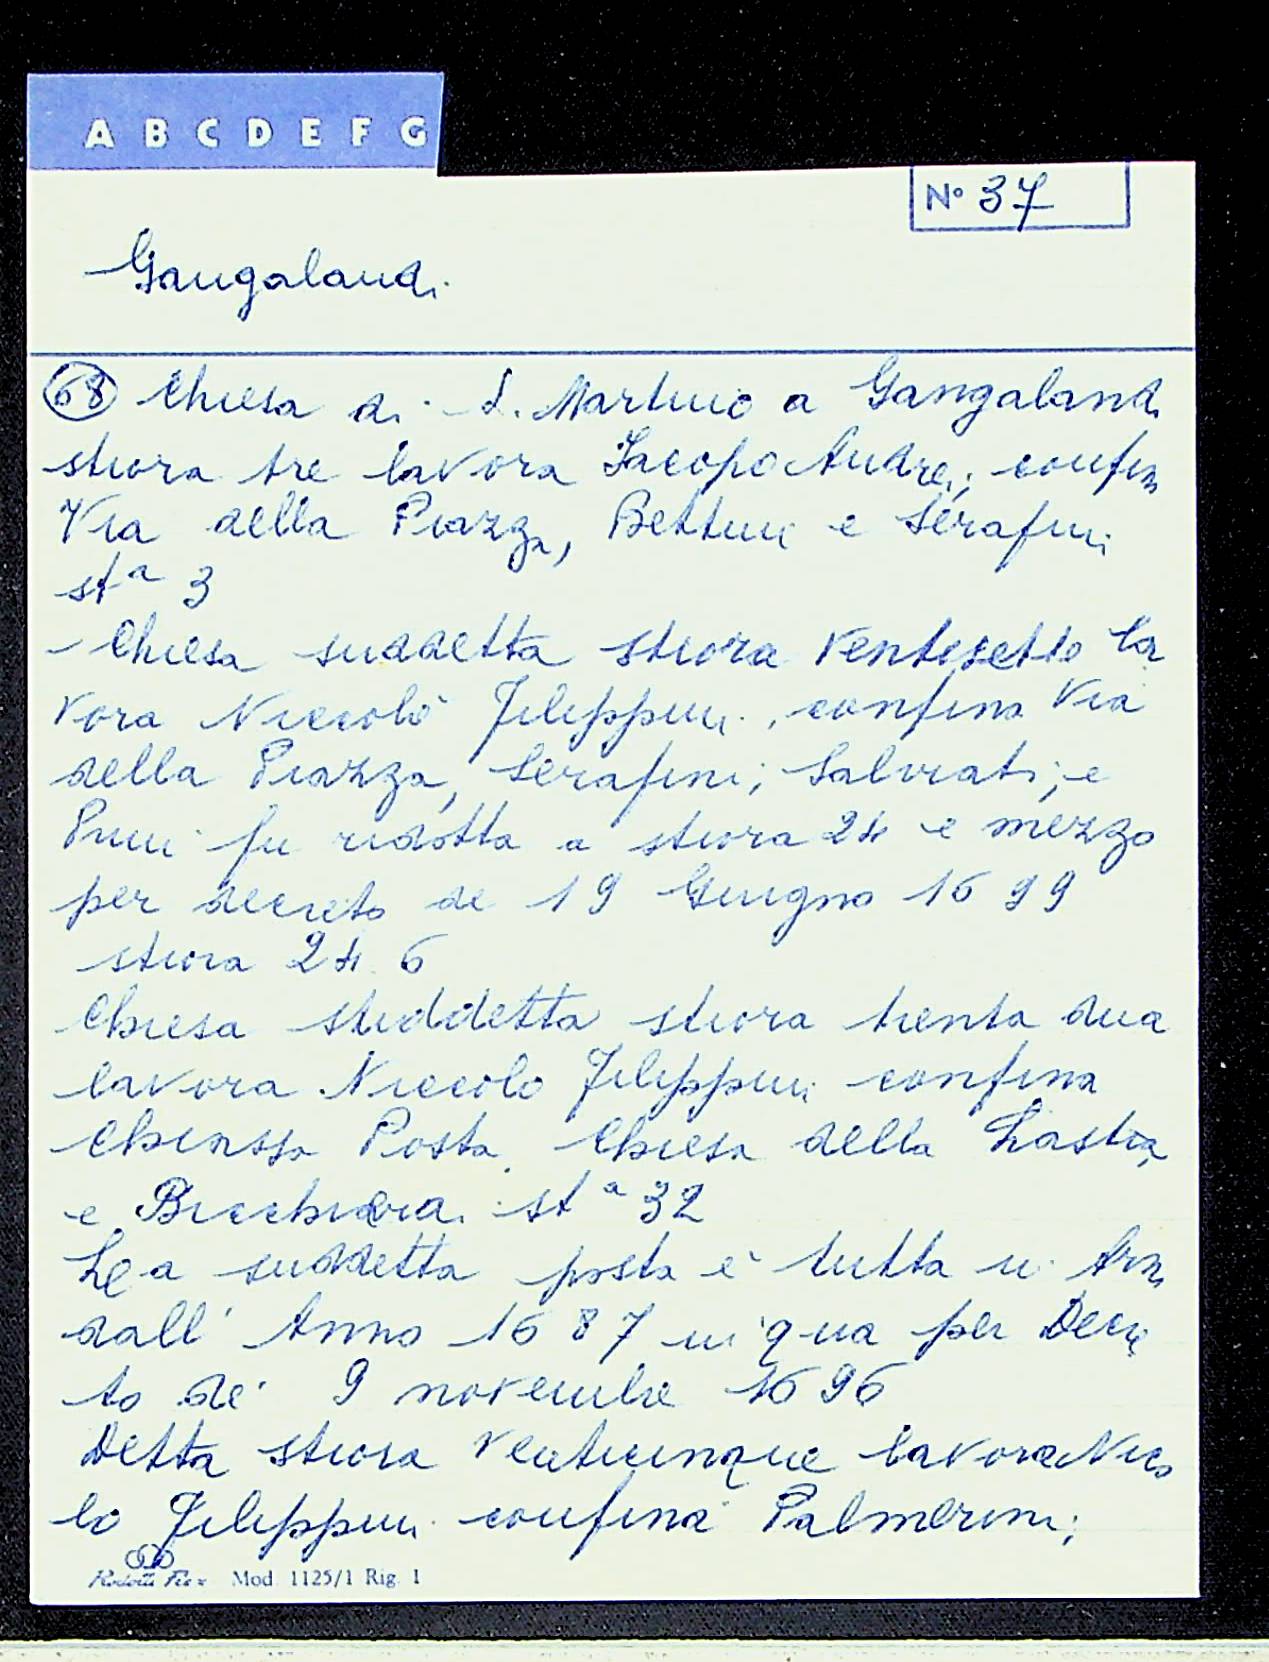 A B C D E F G
N° 37
Gangalandi
68 Chiesa di S. Martino a Gangalandi
stiora tre lavora Iacopo Andrei; confin
Via della Piazza, Bettini e Serafini
st a 3
- Chiesa suddetta stiora ventisette la
vora Niccolò Filippini, confina Via
della Piazza, Serafini; Salviati; e
Pini fu ridotta a stiora 24 e mezzo
per decreto de 19 Giugno 1699
stiora 24. 6
Chiesa suddetta stiora trenta dua
lavora Niccolo Filippini confina
Posta Chiesa della Lastra
e st a 32
La suddetta posta è tutta in Arn
dall' Anno 1687 in qua per Decre
to de' 9 novembre 1696
Detta stiora venticinque lavora Nico
lo Filippini confina Palmerini;
Mod. 1125/1 Rig. 1